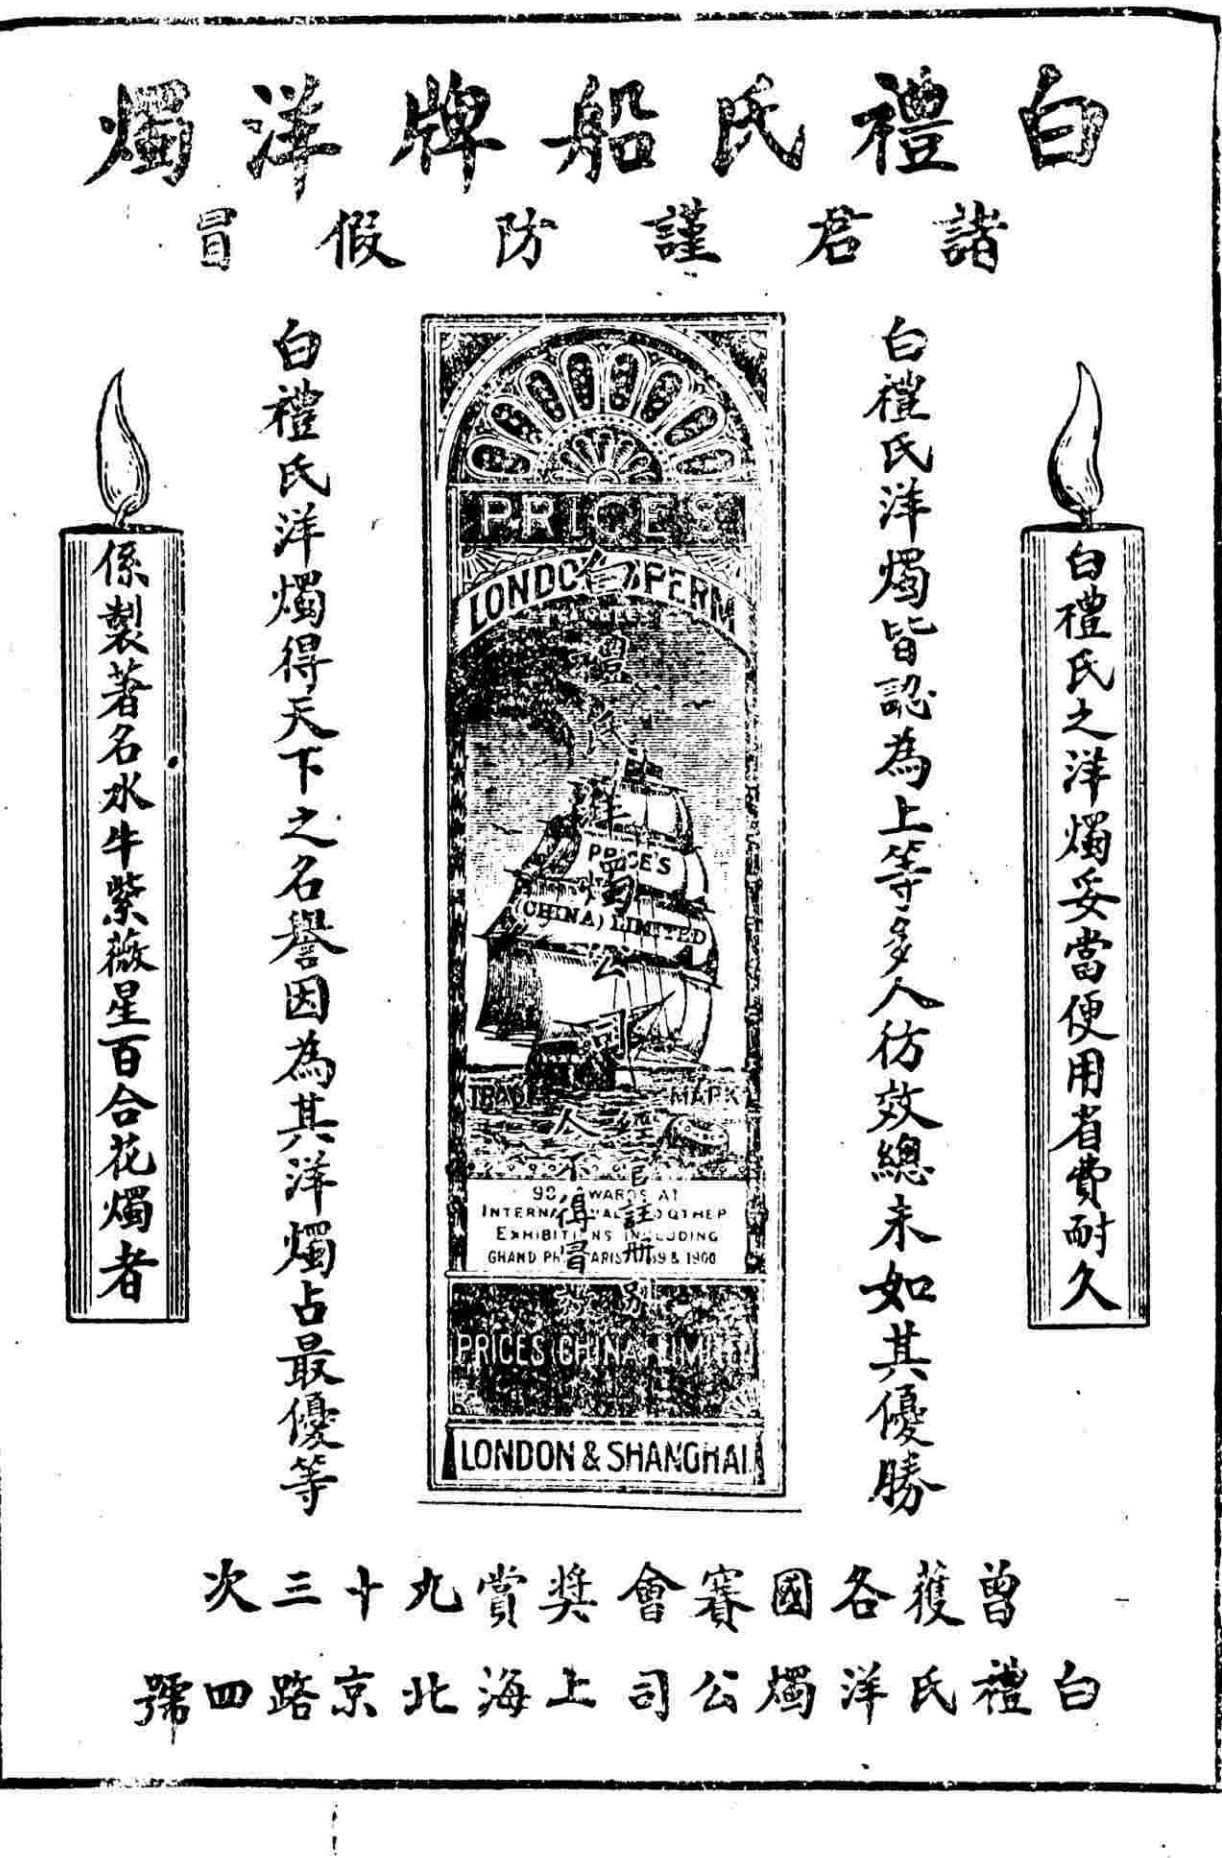 白禮氏船牌洋燭
諸君謹防假冒
白禮氏之洋燭妥當便用省費耐久
白禮氏洋燭皆認為上等多人彷效總未如其優勝
PRICES
LONDON SPERM
白禮氏洋燭公司
PRICE'S
(CHINA) LIMITED
TRADE MARK
經官註冊別
人不得冒
93 AWARDS AT
INTERNATIONAL & OTHER
EXHIBITIONS INCLUDING
GRAND PRIX PARIS 1889 & 1900
PRICES CHINA LIMITED
LONDON & SHANGHAI
白禮氏洋燭得天下之名譽因為其洋燭占最優等
係製著名水牛紫薇星百合花燭者
曾獲各國賽會獎賞九十三次
白禮氏洋燭公司上海北京路四號